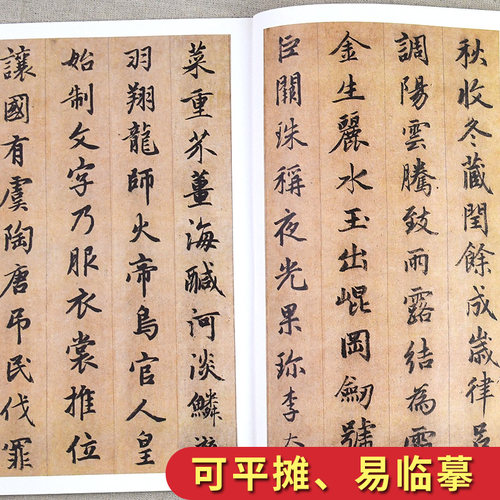 秋收冬藏閏餘成歲律
調陽雲騰致雨露結為
金生麗水玉出崐岡劒號
巨闕珠稱夜光果珍李
菜重芥薑海醎河淡鱗
羽翔龍師火帝鳥官人皇
始制文字乃服衣裳推位
讓國有虞陶唐吊民伐罪
可平摊、易临摹